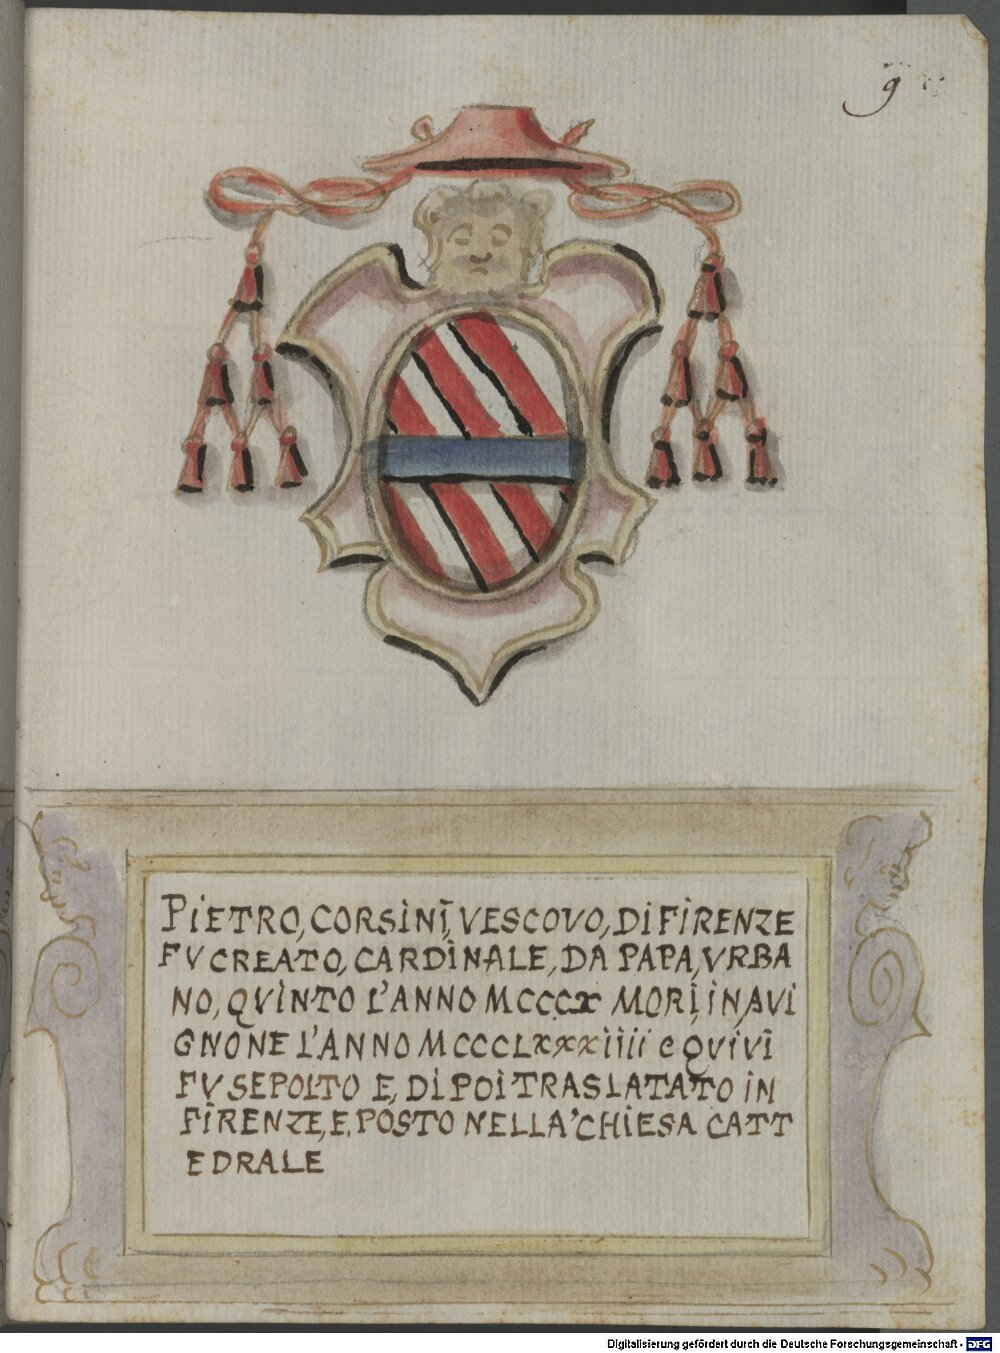 9
PIETRO, CORSINI, VESCOVO, DI FIRENZE
FV CREATO, CARDINALE, DA PAPA, VRBA
NO, QVINTO L'ANNO MCCCX MORI, IN AVI
GNONE L'ANNO MCCCLXXXIIII e QVIVI
FV SEPOLTO E, DI POI TRASLATATO IN
FIRENZE, E, POSTO NELLA CHIESA CATT
EDRALE
Digitalisierung gefördert durch die Deutsche Forschungsgemeinschaft - DFG